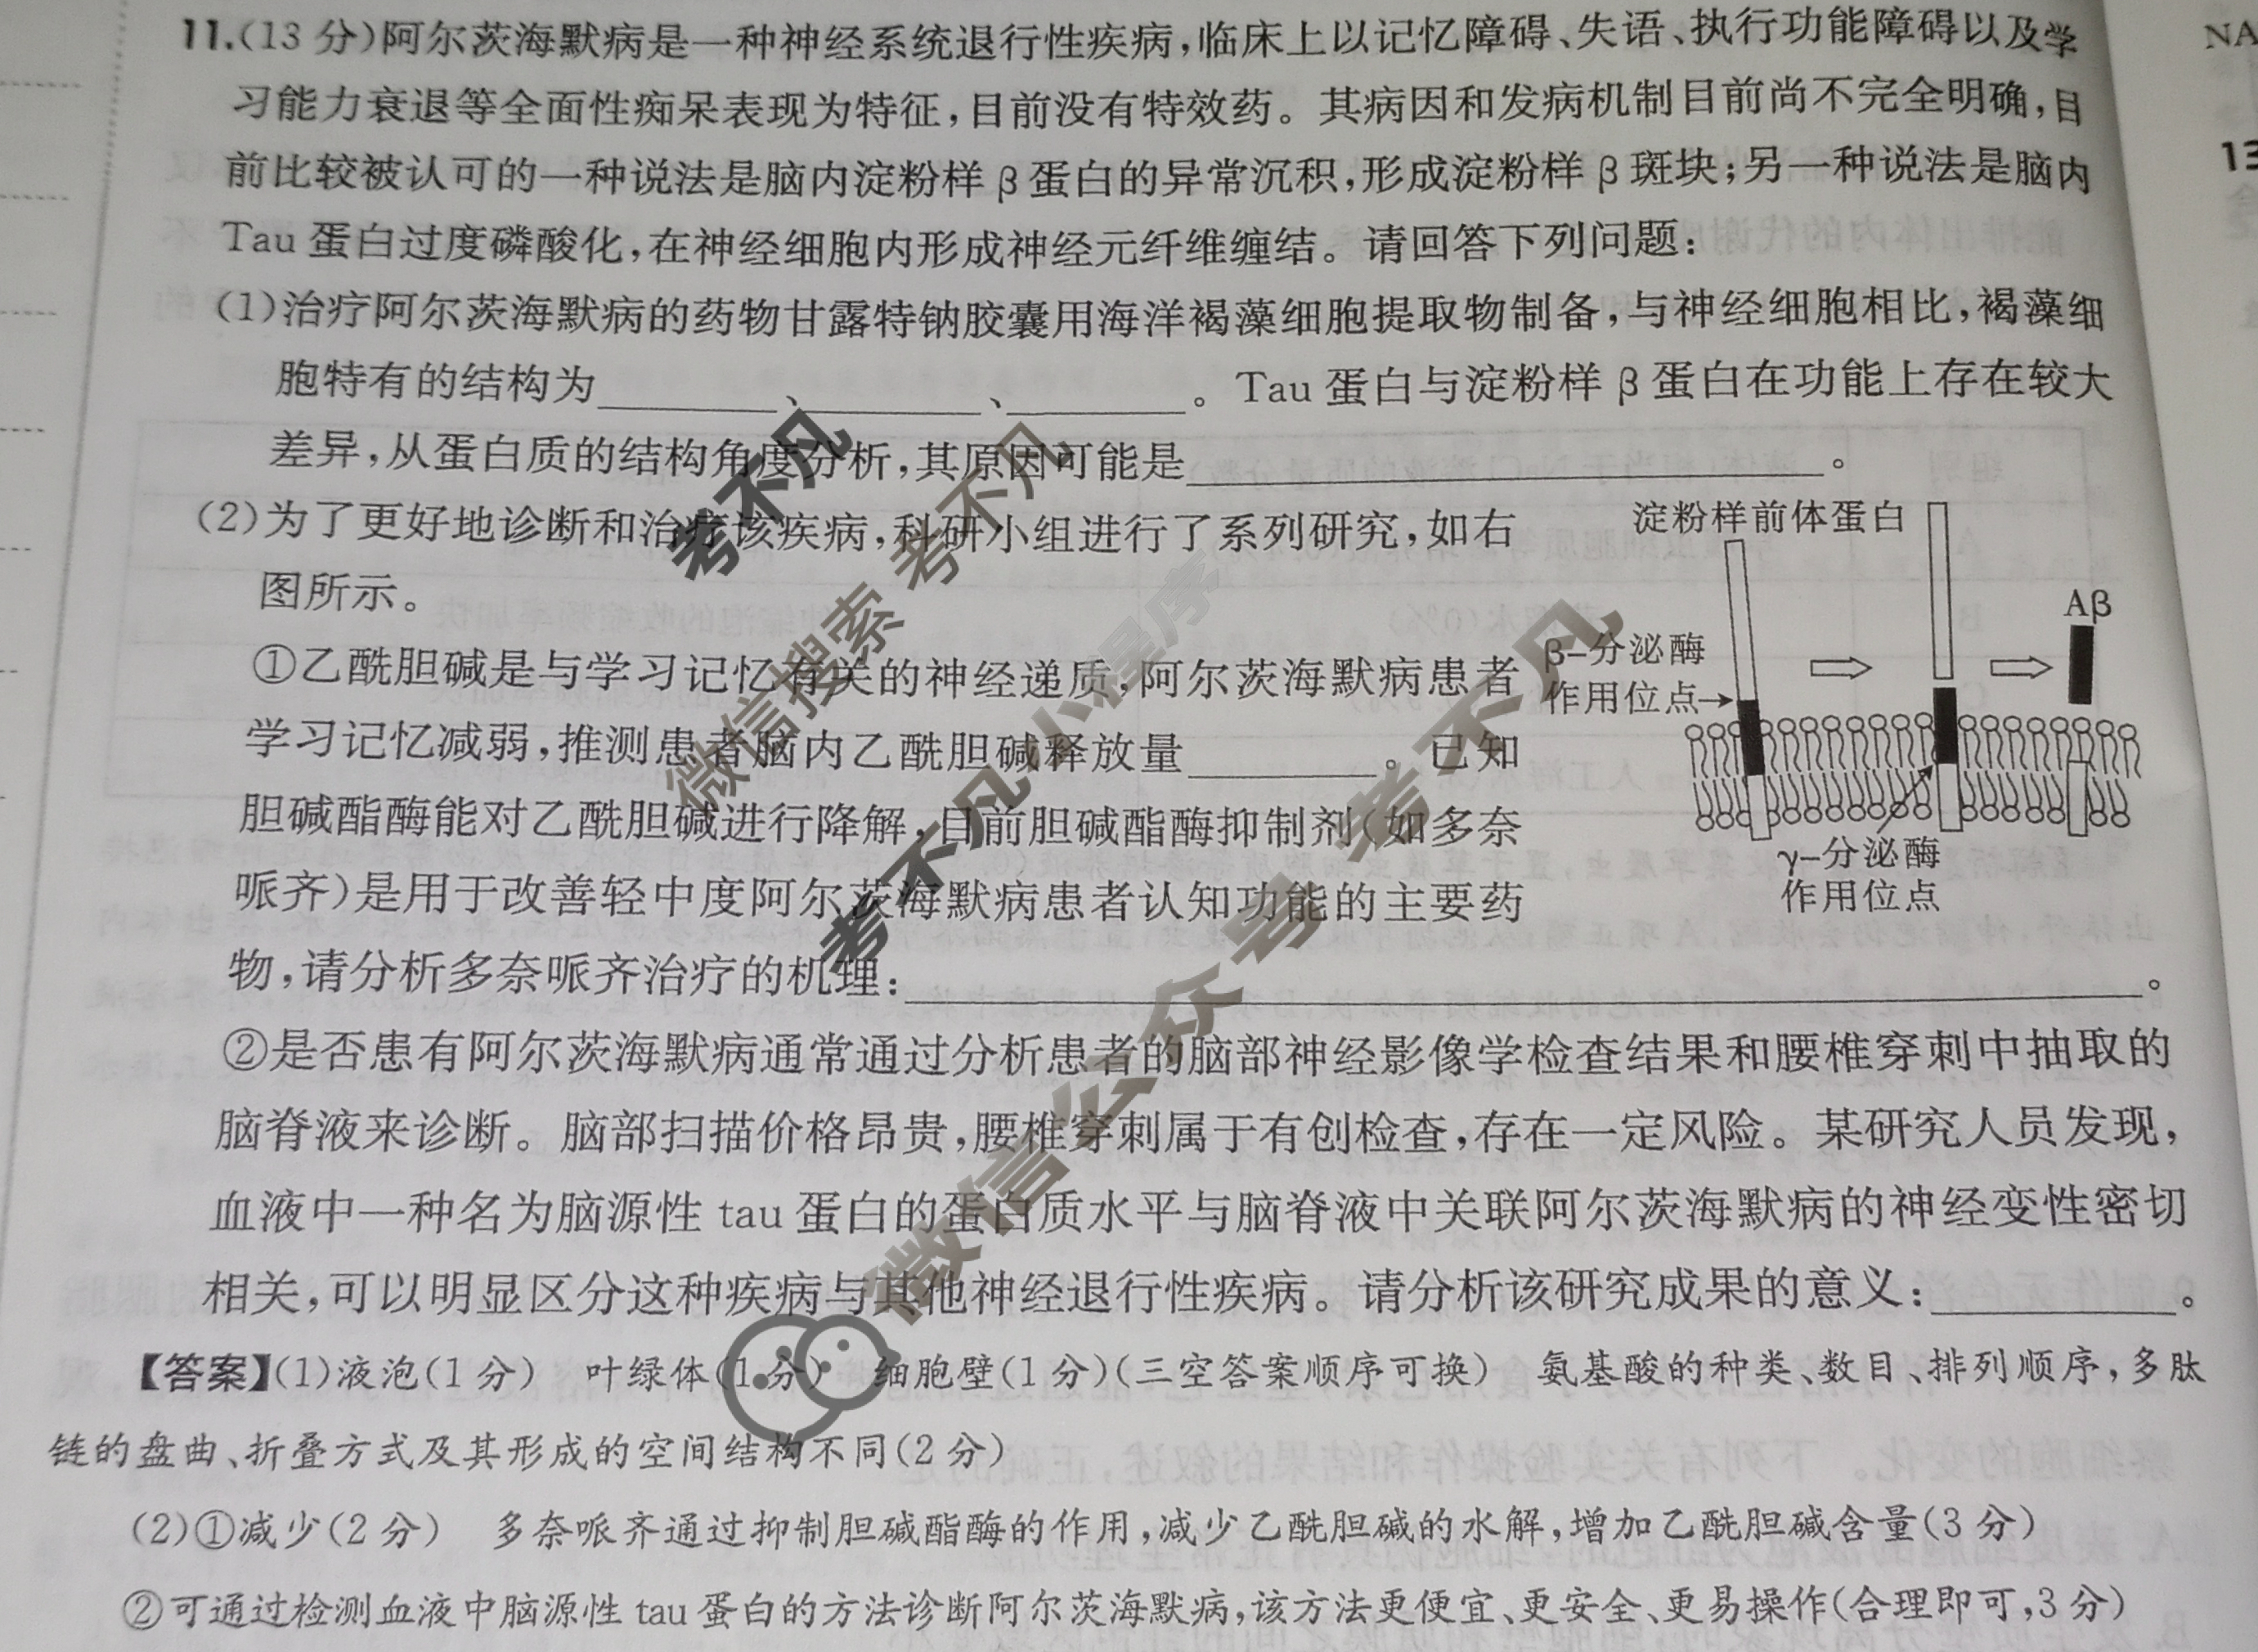 11.(13分)阿尔茨海默病是一种神经系统退行性疾病,临床上以记忆障碍、失语、执行功能障碍以及学
习能力衰退等全面性痴呆表现为特征,目前没有特效药。其病因和发病机制目前尚不完全明确,目
前比较被认可的一种说法是脑内淀粉样β蛋白的异常沉积,形成淀粉样β斑块;另一种说法是脑内
Tau蛋白过度磷酸化,在神经细胞内形成神经元纤维缠结。请回答下列问题:
(1)治疗阿尔茨海默病的药物甘露特钠胶囊用海洋褐藻细胞提取物制备,与神经细胞相比,褐藻细
胞特有的结构为________、________、________。Tau蛋白与淀粉样β蛋白在功能上存在较大
差异,从蛋白质的结构角度分析,其原因可能是________________。
(2)为了更好地诊断和治疗该疾病,科研小组进行了系列研究,如右
图所示。
①乙酰胆碱是与学习记忆有关的神经递质,阿尔茨海默病患者
学习记忆减弱,推测患者脑内乙酰胆碱释放量________。已知
胆碱酯酶能对乙酰胆碱进行降解,目前胆碱酯酶抑制剂(如多奈
哌齐)是用于改善轻中度阿尔茨海默病患者认知功能的主要药
物,请分析多奈哌齐治疗的机理:________________。
淀粉样前体蛋白
Aβ
β-分泌酶
作用位点
γ-分泌酶
作用位点
②是否患有阿尔茨海默病通常通过分析患者的脑部神经影像学检查结果和腰椎穿刺中抽取的
脑脊液来诊断。脑部扫描价格昂贵,腰椎穿刺属于有创检查,存在一定风险。某研究人员发现,
血液中一种名为脑源性tau蛋白的蛋白质水平与脑脊液中关联阿尔茨海默病的神经变性密切
相关,可以明显区分这种疾病与其他神经退行性疾病。请分析该研究成果的意义:________。
【答案】(1)液泡(1分) 叶绿体(1分) 细胞壁(1分)(三空答案顺序可换) 氨基酸的种类、数目、排列顺序,多肽
链的盘曲、折叠方式及其形成的空间结构不同(2分)
(2)①减少(2分) 多奈哌齐通过抑制胆碱酯酶的作用,减少乙酰胆碱的水解,增加乙酰胆碱含量(3分)
②可通过检测血液中脑源性tau蛋白的方法诊断阿尔茨海默病,该方法更便宜、更安全、更易操作(合理即可,3分)
NA
13
考不凡
微信搜索 考不凡
考不凡·小程序
微信公众号 考不凡